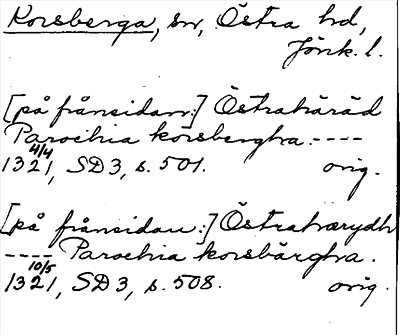 Korsberga, sn, Östra hd,
Jönk. l.
[på frånsidan:] Östrahäräd
Parochia korsberghra. ----
4/4
1321, SD 3, s. 501. orig.
[på frånsidan:] Östrahærydh
---- Parochia korsbärghra.
10/5
1321, SD 3, s. 508. orig.